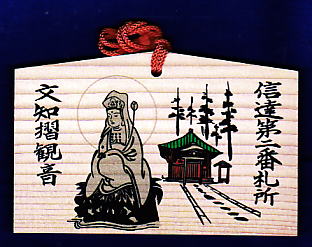 信達第二番札所
文知摺観音